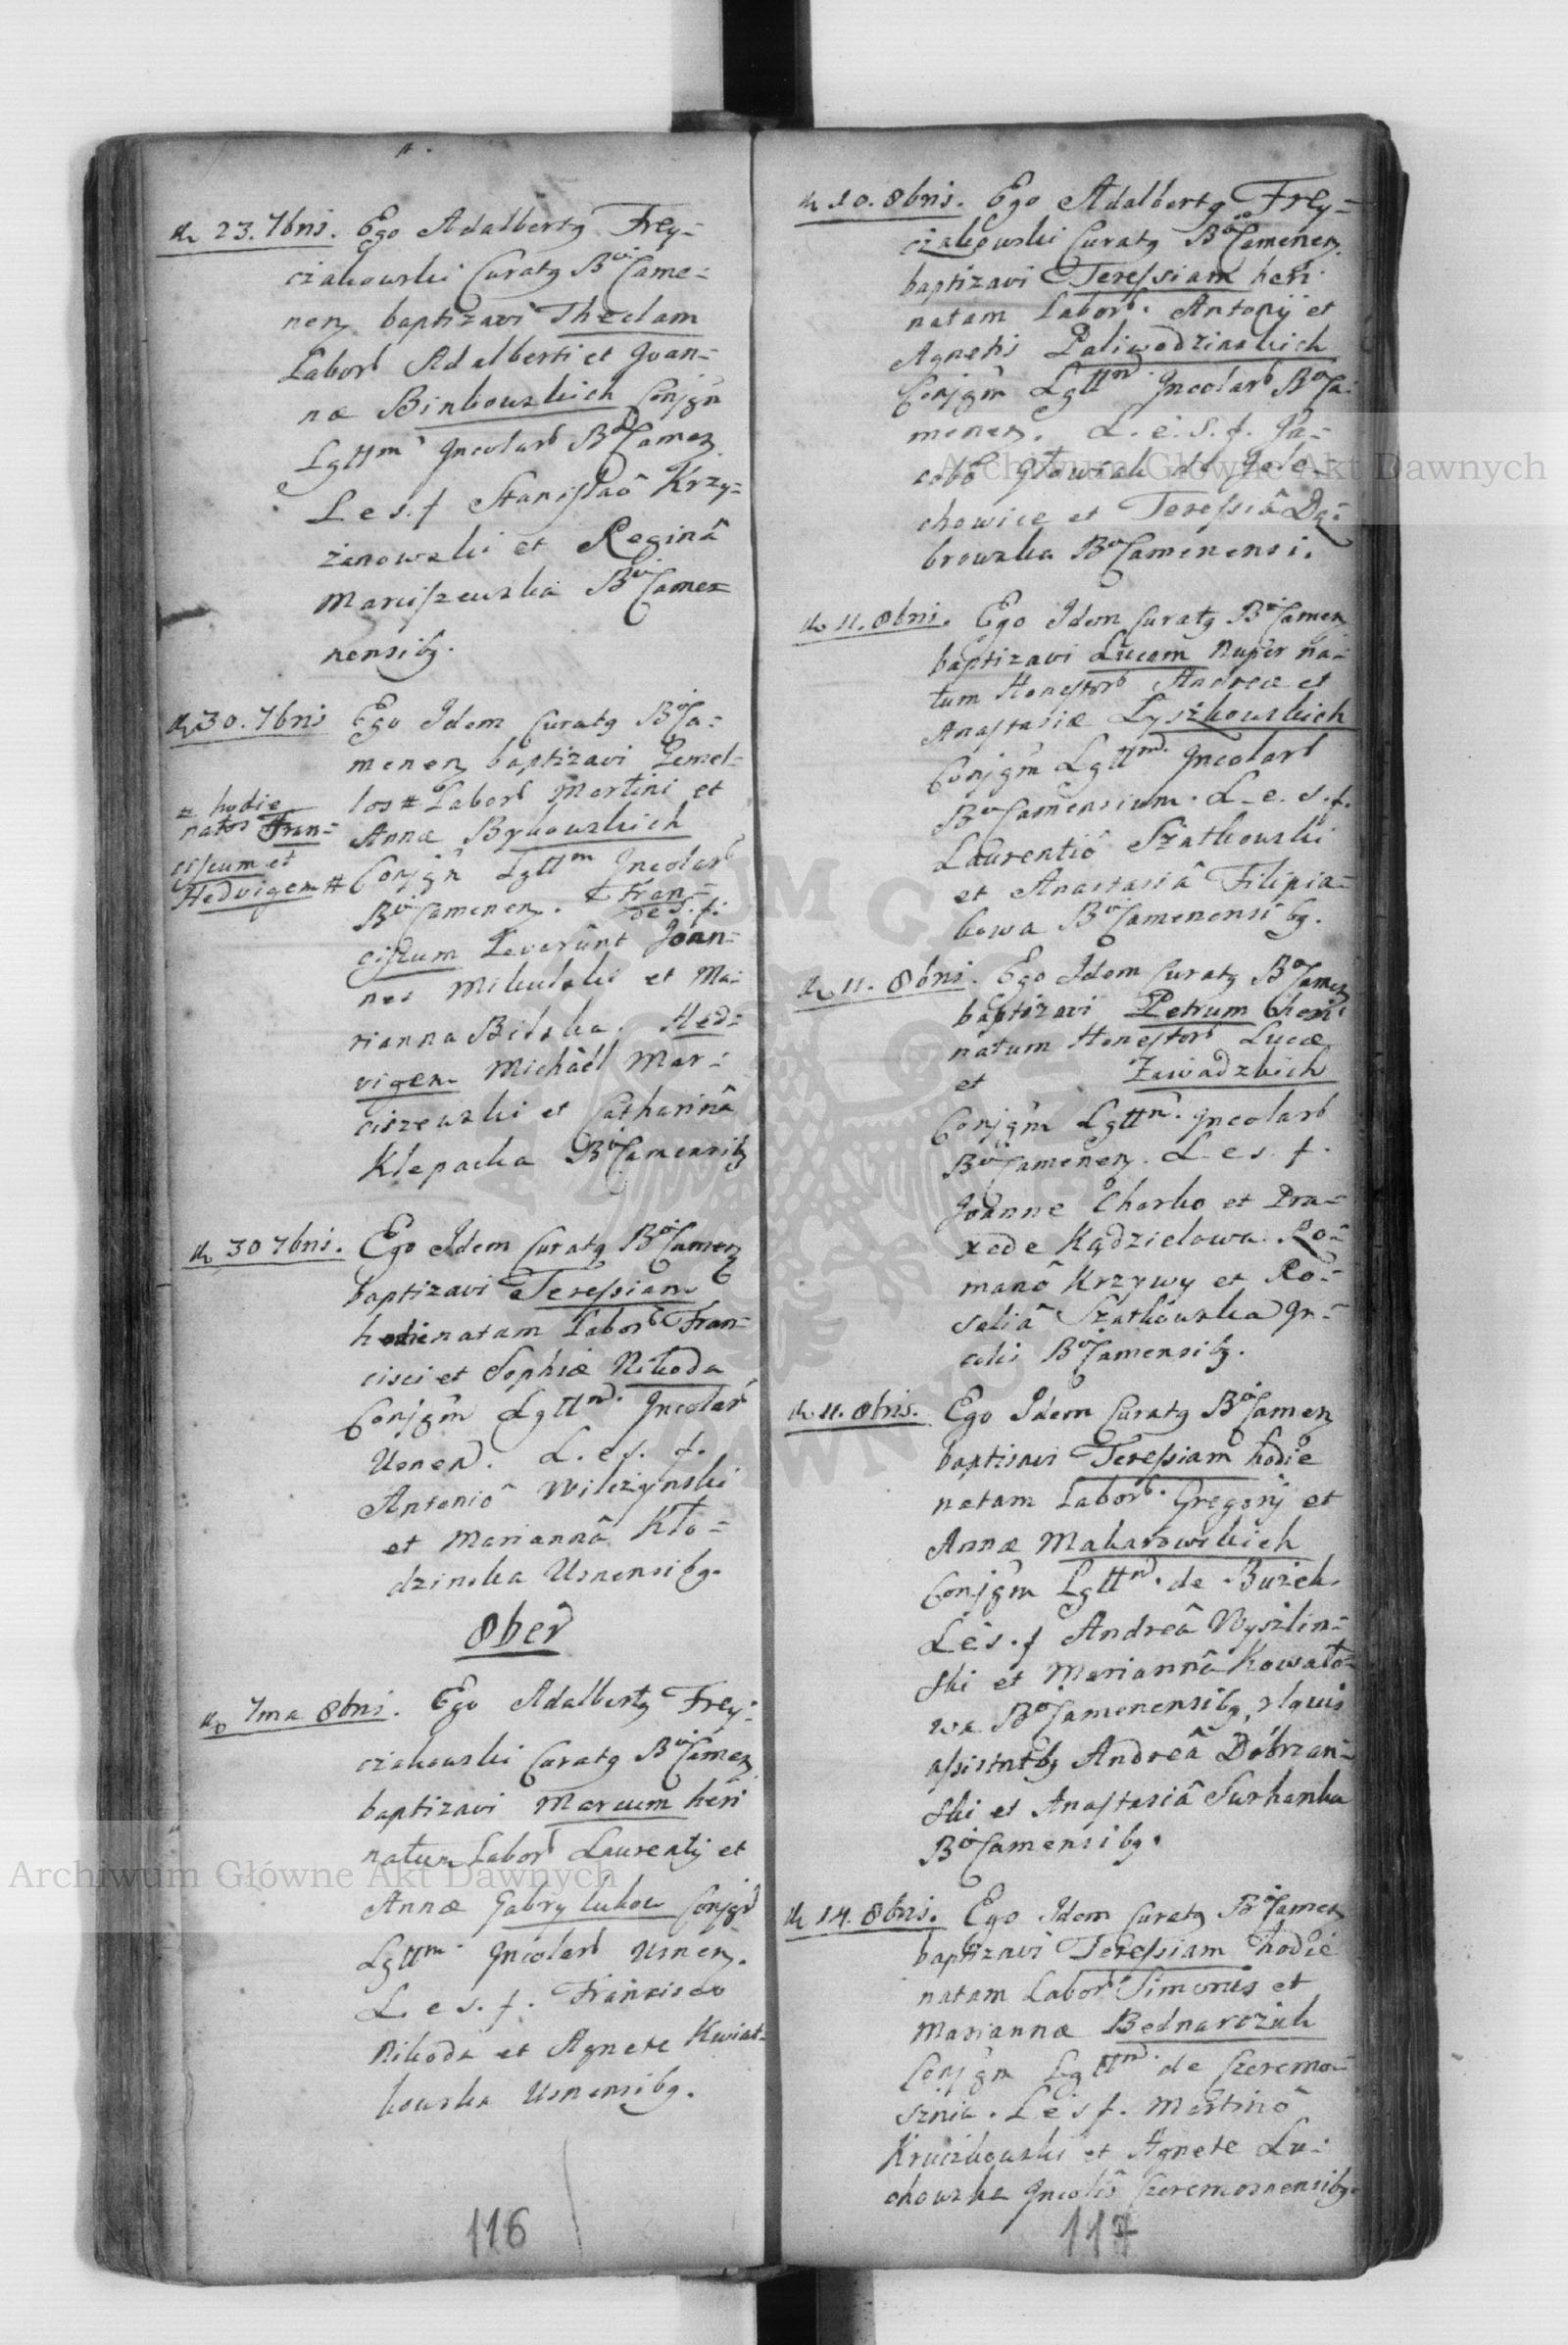 d. 23. 7bris. Ego Adalbertq Frey=
czakowski Curatq Bvi Came=
nen baptizavi Theclam
Labor Adalberti et Joan=
næ Binkowskich Conjgm
Lgttm Incolar Bvi Camen
L e s. f Stanislaô Krzy=
żanowski et Reginâ
Marciszewska Bvi Came=
nensibq.
d. 30. 7bris Ego Idem Curatq Bvi Ca=
menen baptizavi Gemel=
los # Labor Martini et
# hodie
natos Fran=
ciscum et
Hedvigem #
Annæ Bykowskich
Conjgm Lgttm Incolar
Bvi Camenen. Fran=
de s. f.
ciscum Levarunt Joan=
nes Mikulski et Ma=
rianna Bilska. Hed=
vigem Michaël Mar=
ciszewski et Catharinâ
Klepacka Bvi Camensibq
d. 30 7bris. Ego Idem Curatq Bvi Camen
baptizavi Teressiam
hodie natam Labor Fran=
cisci et Sophiæ Nikoda
Conjgm Lgttm. Incolar
Usnen. L. e s. f.
Antoniô Wilczynski
et Mariannâ Kło=
dzinska Usnensibq.
8ber
d. 7ma 8bris. Ego Adalbertq Frey=
czakowski Curatq Bvi Camen
baptizavi Marcum heri
natum Labor Laurentij et
Annæ Gabrylukow Conjgm
Lgttm Incolar Usnen.
L e s. f. Francisco
Nikoda et Agnete Kwiat=
kowska Usnensibq.
116
d. 10. 8bris. Ego Adalbertq Frey=
czakowski Curatq Bvi Camenen
baptizavi Teressiam heri
natam Labor. Antonij et
Agnetis Paliwodzinskich
Conjgm Lgttm. Incolar Bvi Ca=
menen. L. e. s. f. Ja=
cobô Głowcak de Gele=
chowice et Teressiâ Dą=
browska Bvi Camenensi.
d. 11. 8bris. Ego Idem Curatq Bvi Camen
baptizavi Lucam nuper na=
tum Honestor Andreæ et
Anastasiæ Łyszkowskich
Conjgm Lgttm. Incolar
Bvi Camensium. L. e. s. f.
Laurentiô Szatkowski
et Anastasiâ Filipia=
kowa Bvi Camenensibq.
d. 11. 8bris. Ego Idem Curatq Bvi Camen
baptizavi Petrum heri
natum Honestor Lucæ
et Zawadzkich
Conjgm Lgttm. Incolar
Bvi Camenen. L e s. f.
Joanne Charko et Pra=
xede Kądzielowa. Ro=
manô Krzywy et Ro=
saliâ Szatkowska In=
colis Bvi Camensibq.
d. 11. 8bris. Ego Idem Curatq Bvi Camen
baptisavi Teressiam hodie
natam Labor. Gregorij et
Annæ Makarowskich
Conjgm Lgttm. de Bużek.
L e s. f Andreâ Wyszlin=
ski et Mariannâ Kowalo=
wa Bvi Camenensibq, rlquis
assistntbq Andreâ Dobrzan=
ski et Anastasiâ Turkanka
Bvi Camensibq.
d. 14. 8bris. Ego Idem Curatq Bvi Camen
baptizavi Teressiam hodie
natam Labor Simonis et
Mariannæ Bednarczuk
Conjgm Lgttm. de Czeremo=
sznia. L e s f. Martinô
Kruczkowski et Agnete Lu=
chowska Incolis Czeremosnensibq.
117
Archiwum Główne Akt Dawnych
Archiwum Główne Akt Dawnych